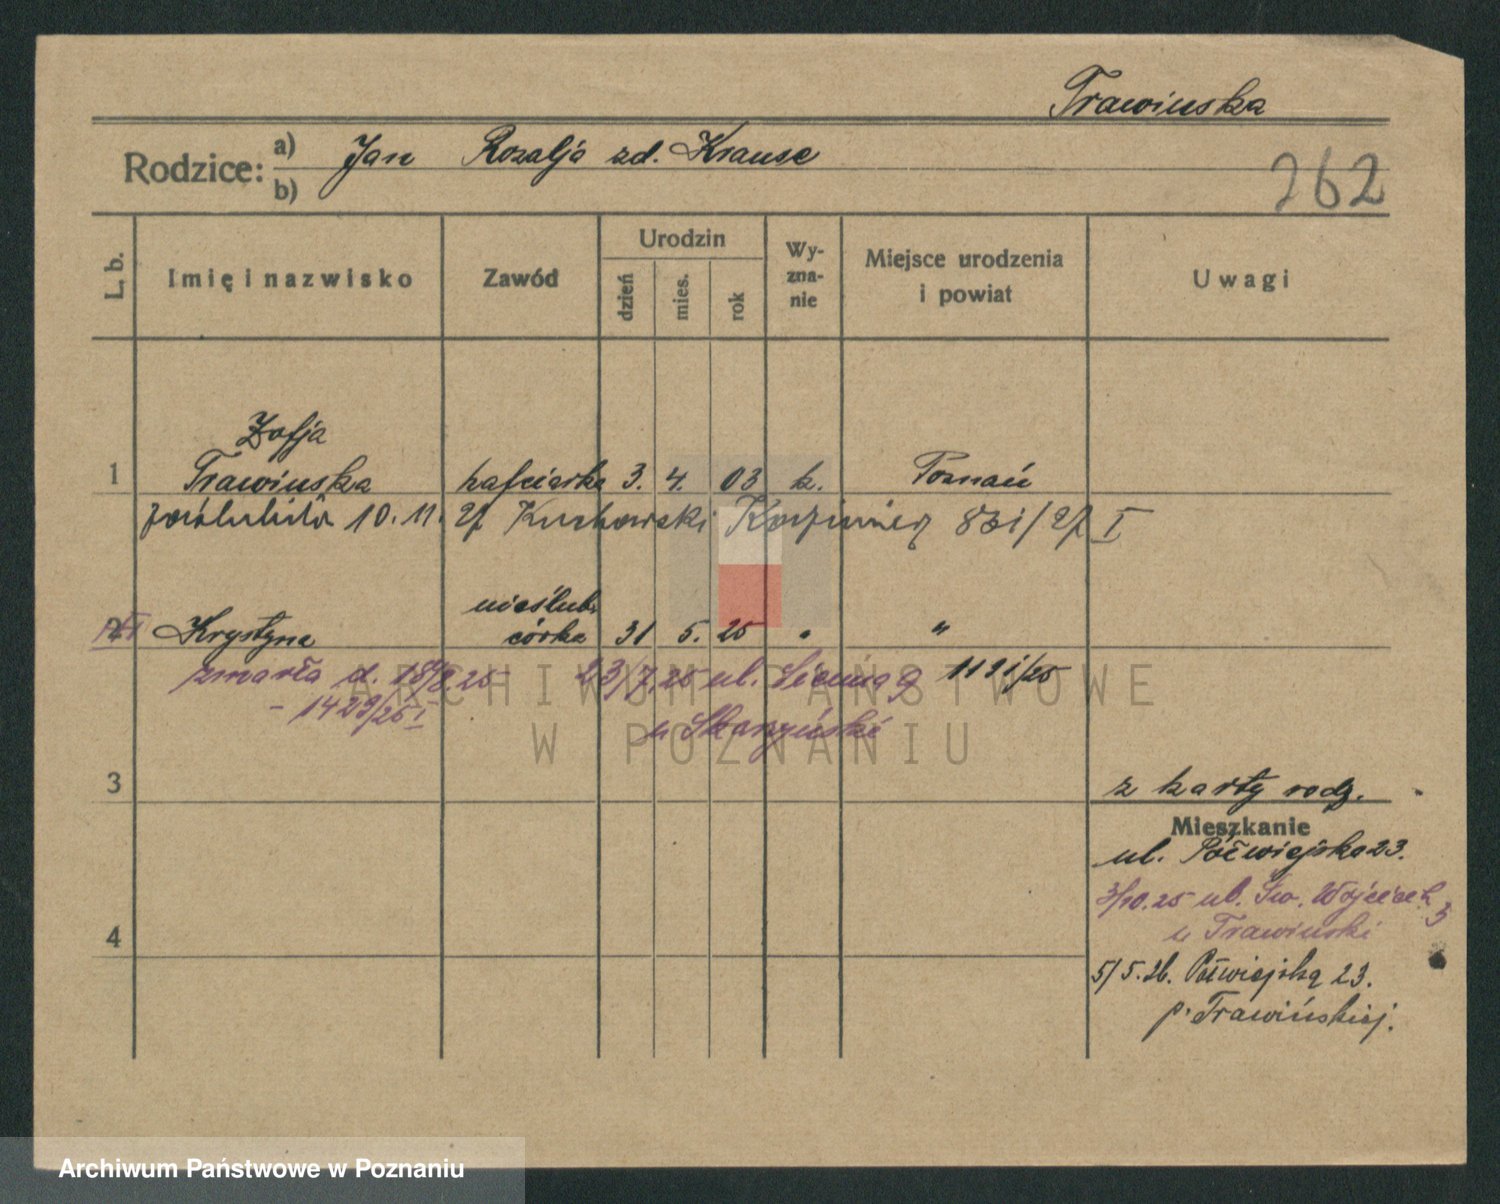 Trawinska
Rodzice: a) Jan Rozalja zd. Krause
b)
262
L. b.
Imię i nazwisko
Zawód
Urodzin
dzień
mies.
rok
Wy-
zna-
nie
Miejsce urodzenia
i powiat
Uwagi
Zofja
1 Trawinska hafciarka 3. 4. 03 k. Poznań
10. 11. 27 Kucharski Kazimierz 831/27 I
nieślub.
2 Krystyna córka 31 5. 25 " "
zmarła d. 18/8.25 23/7.25 ul. 9 1191/25
- 1429/25 I
u Skarzyński
3
z karty rodz.
Mieszkanie
ul. Półwiejska 23.
3/10.25 ul. Św. Wojciech 3
u Trawinski
4
5/5.26. Półwiejska 23.
p. Trawińskiej.
ARCHIWUM PAŃSTWOWE
W POZNANIU
Archiwum Państwowe w Poznaniu